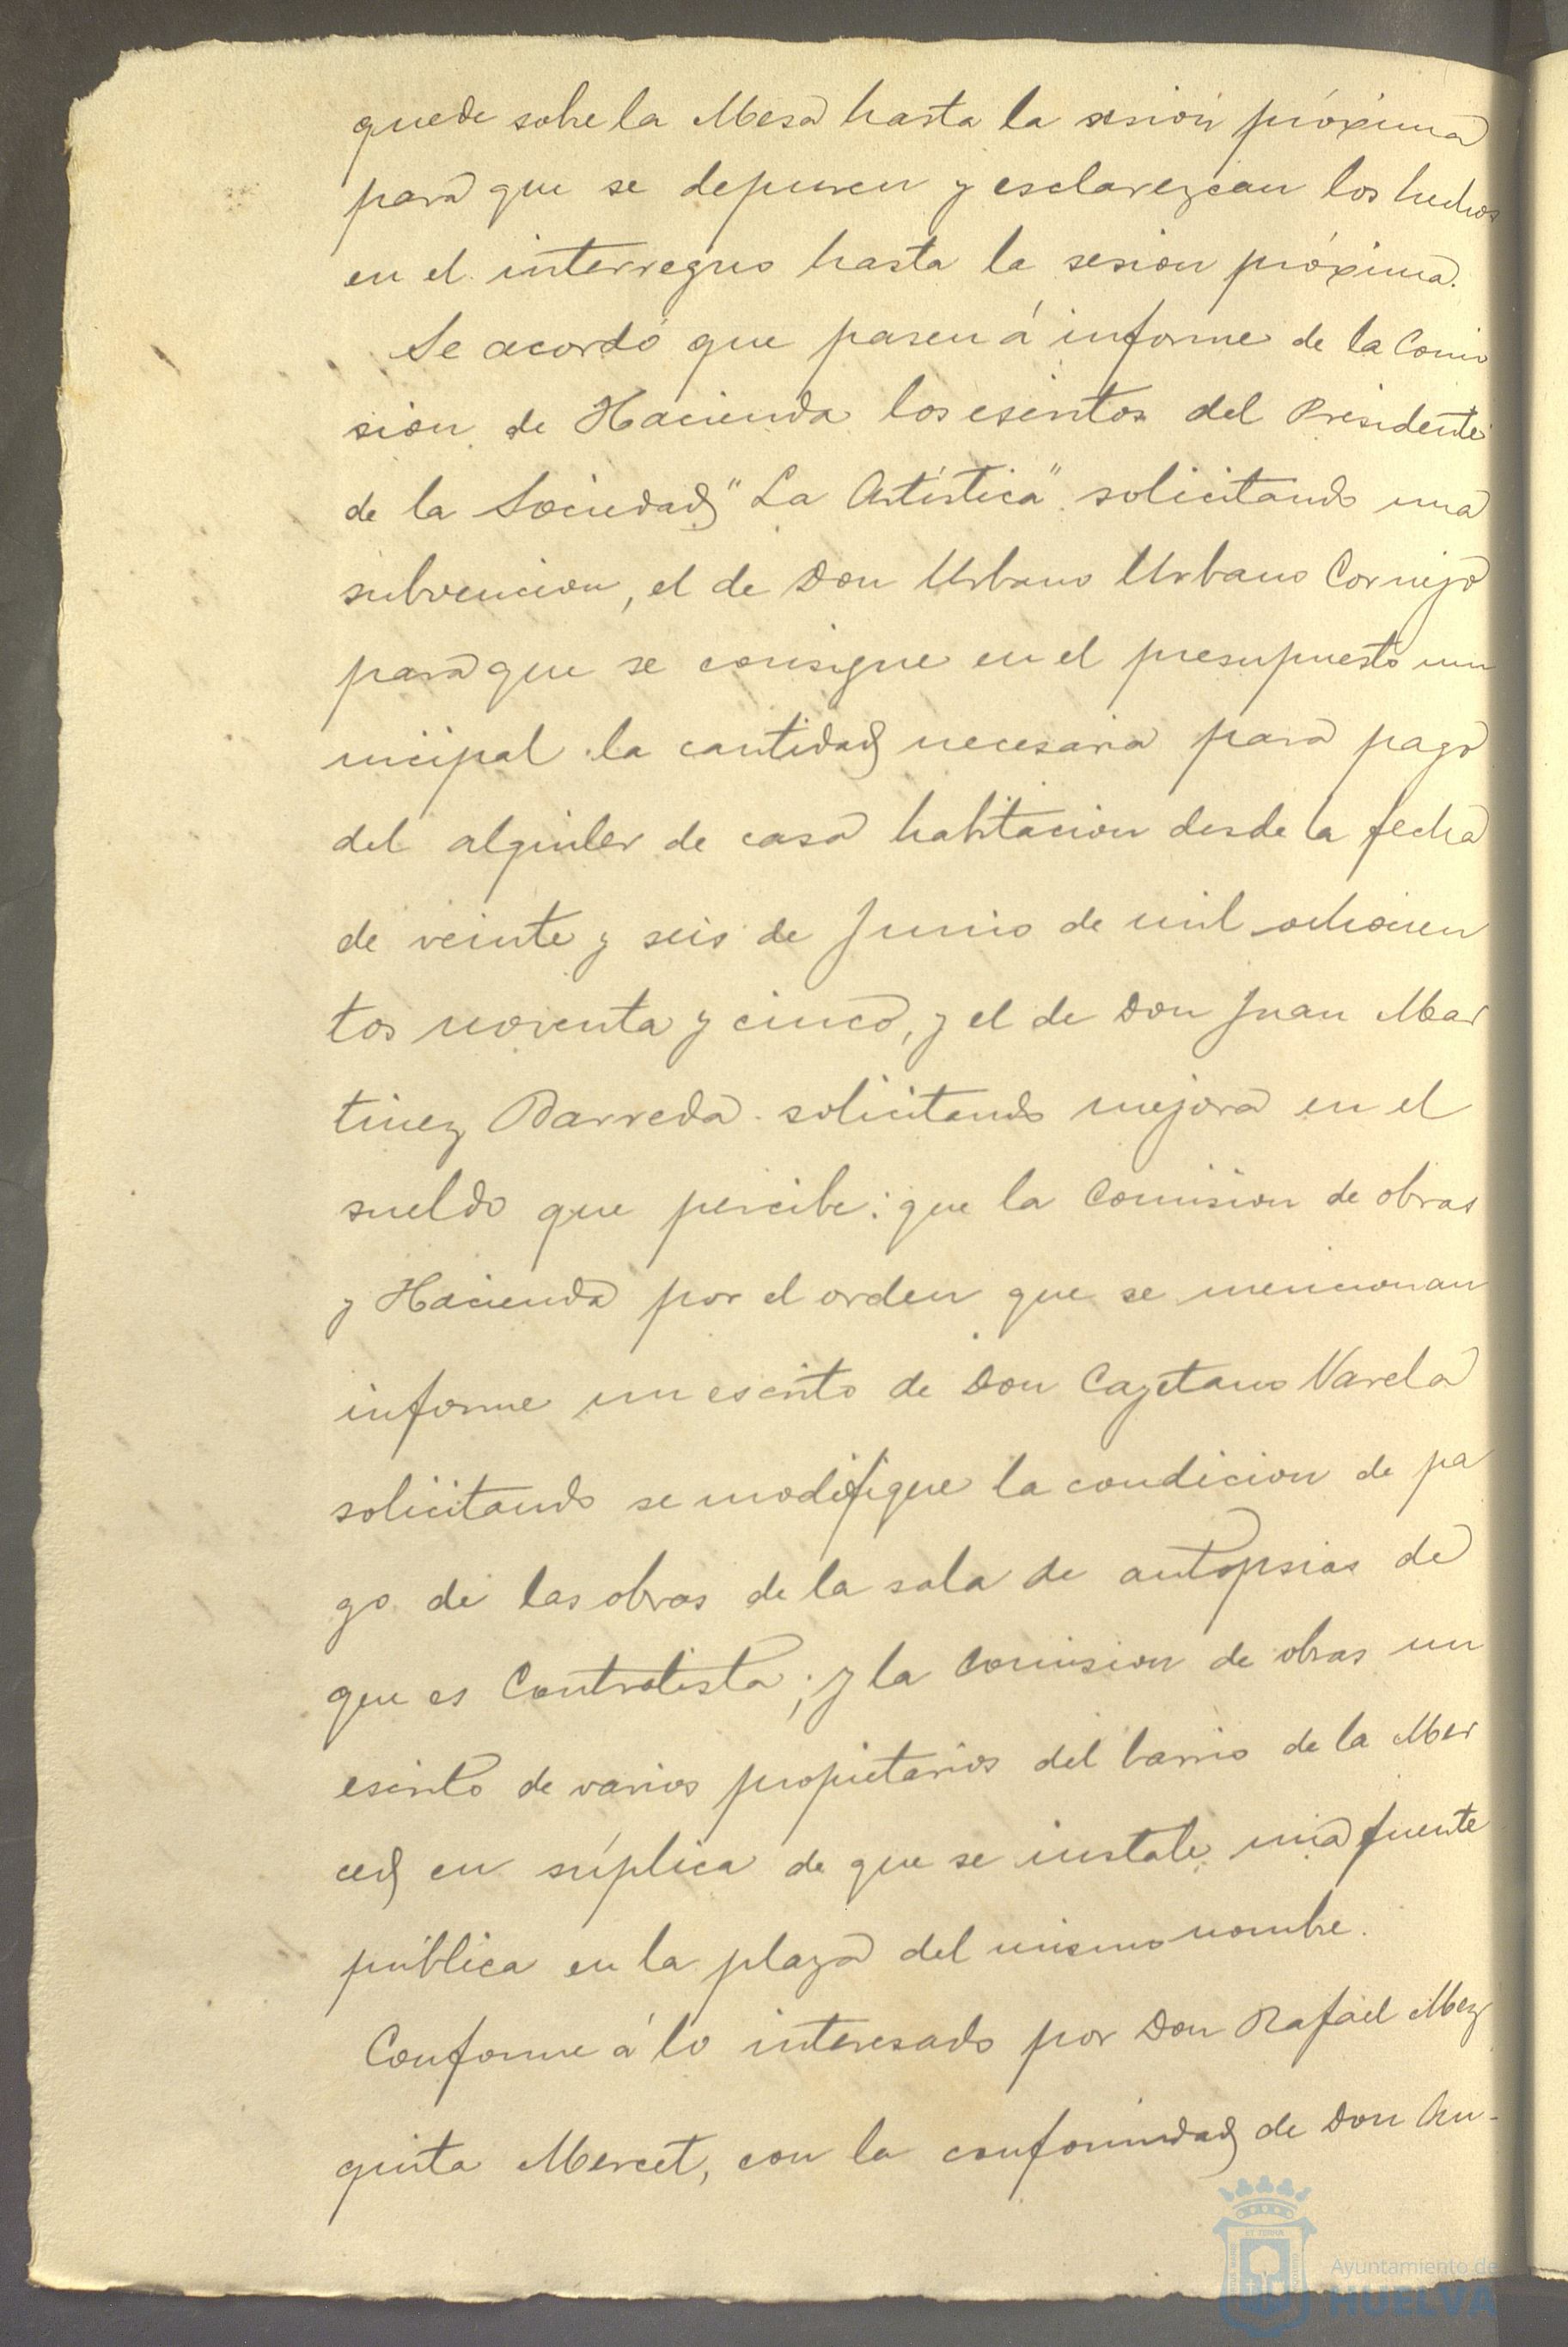 quede sobre la Mesa hasta la sesion próxima
para que se depuren y esclarezcan los hechos
en el interregno hasta la sesion próxima.
Se acordó que pasen á informe de la Comi
sion de Hacienda los escritos del Presidente
de la Sociedad "La Artística" solicitando una
subvencion, el de Don Urbano Urbano Cornejo
para que se consigne en el presupuesto mu
nicipal la cantidad necesaria para pago
del alquiler de casa habitacion desde la fecha
de veinte y seis de Junio de mil ochocien
tos noventa y cinco, y el de Don Juan Mar
tinez Barreda solicitando mejora en el
sueldo que percibe: que la Comision de obras
y Hacienda por el orden que se mencionan
informe un escrito de Don Cayetano Varela
solicitando se modifique la condicion de pa
go de las obras de la sala de autopsias de
que es Contratista; y la Comision de obras un
escrito de varios propietarios del barrio de la Mer
ced en súplica de que se instale una fuente
pública en la plaza del mismo nombre.
Conforme á lo interesado por Don Rafael Mez
quita Mercet, con la conformidad de Don An-
Ayuntamiento de
HUELVA